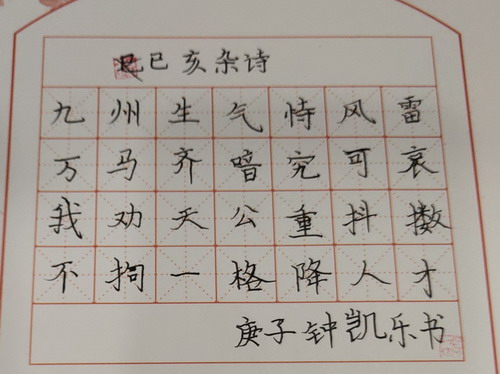 已亥杂诗
九州生气恃风雷
万马齐喑究可哀
我劝天公重抖擞
不拘一格降人才
庚子钟凯乐书